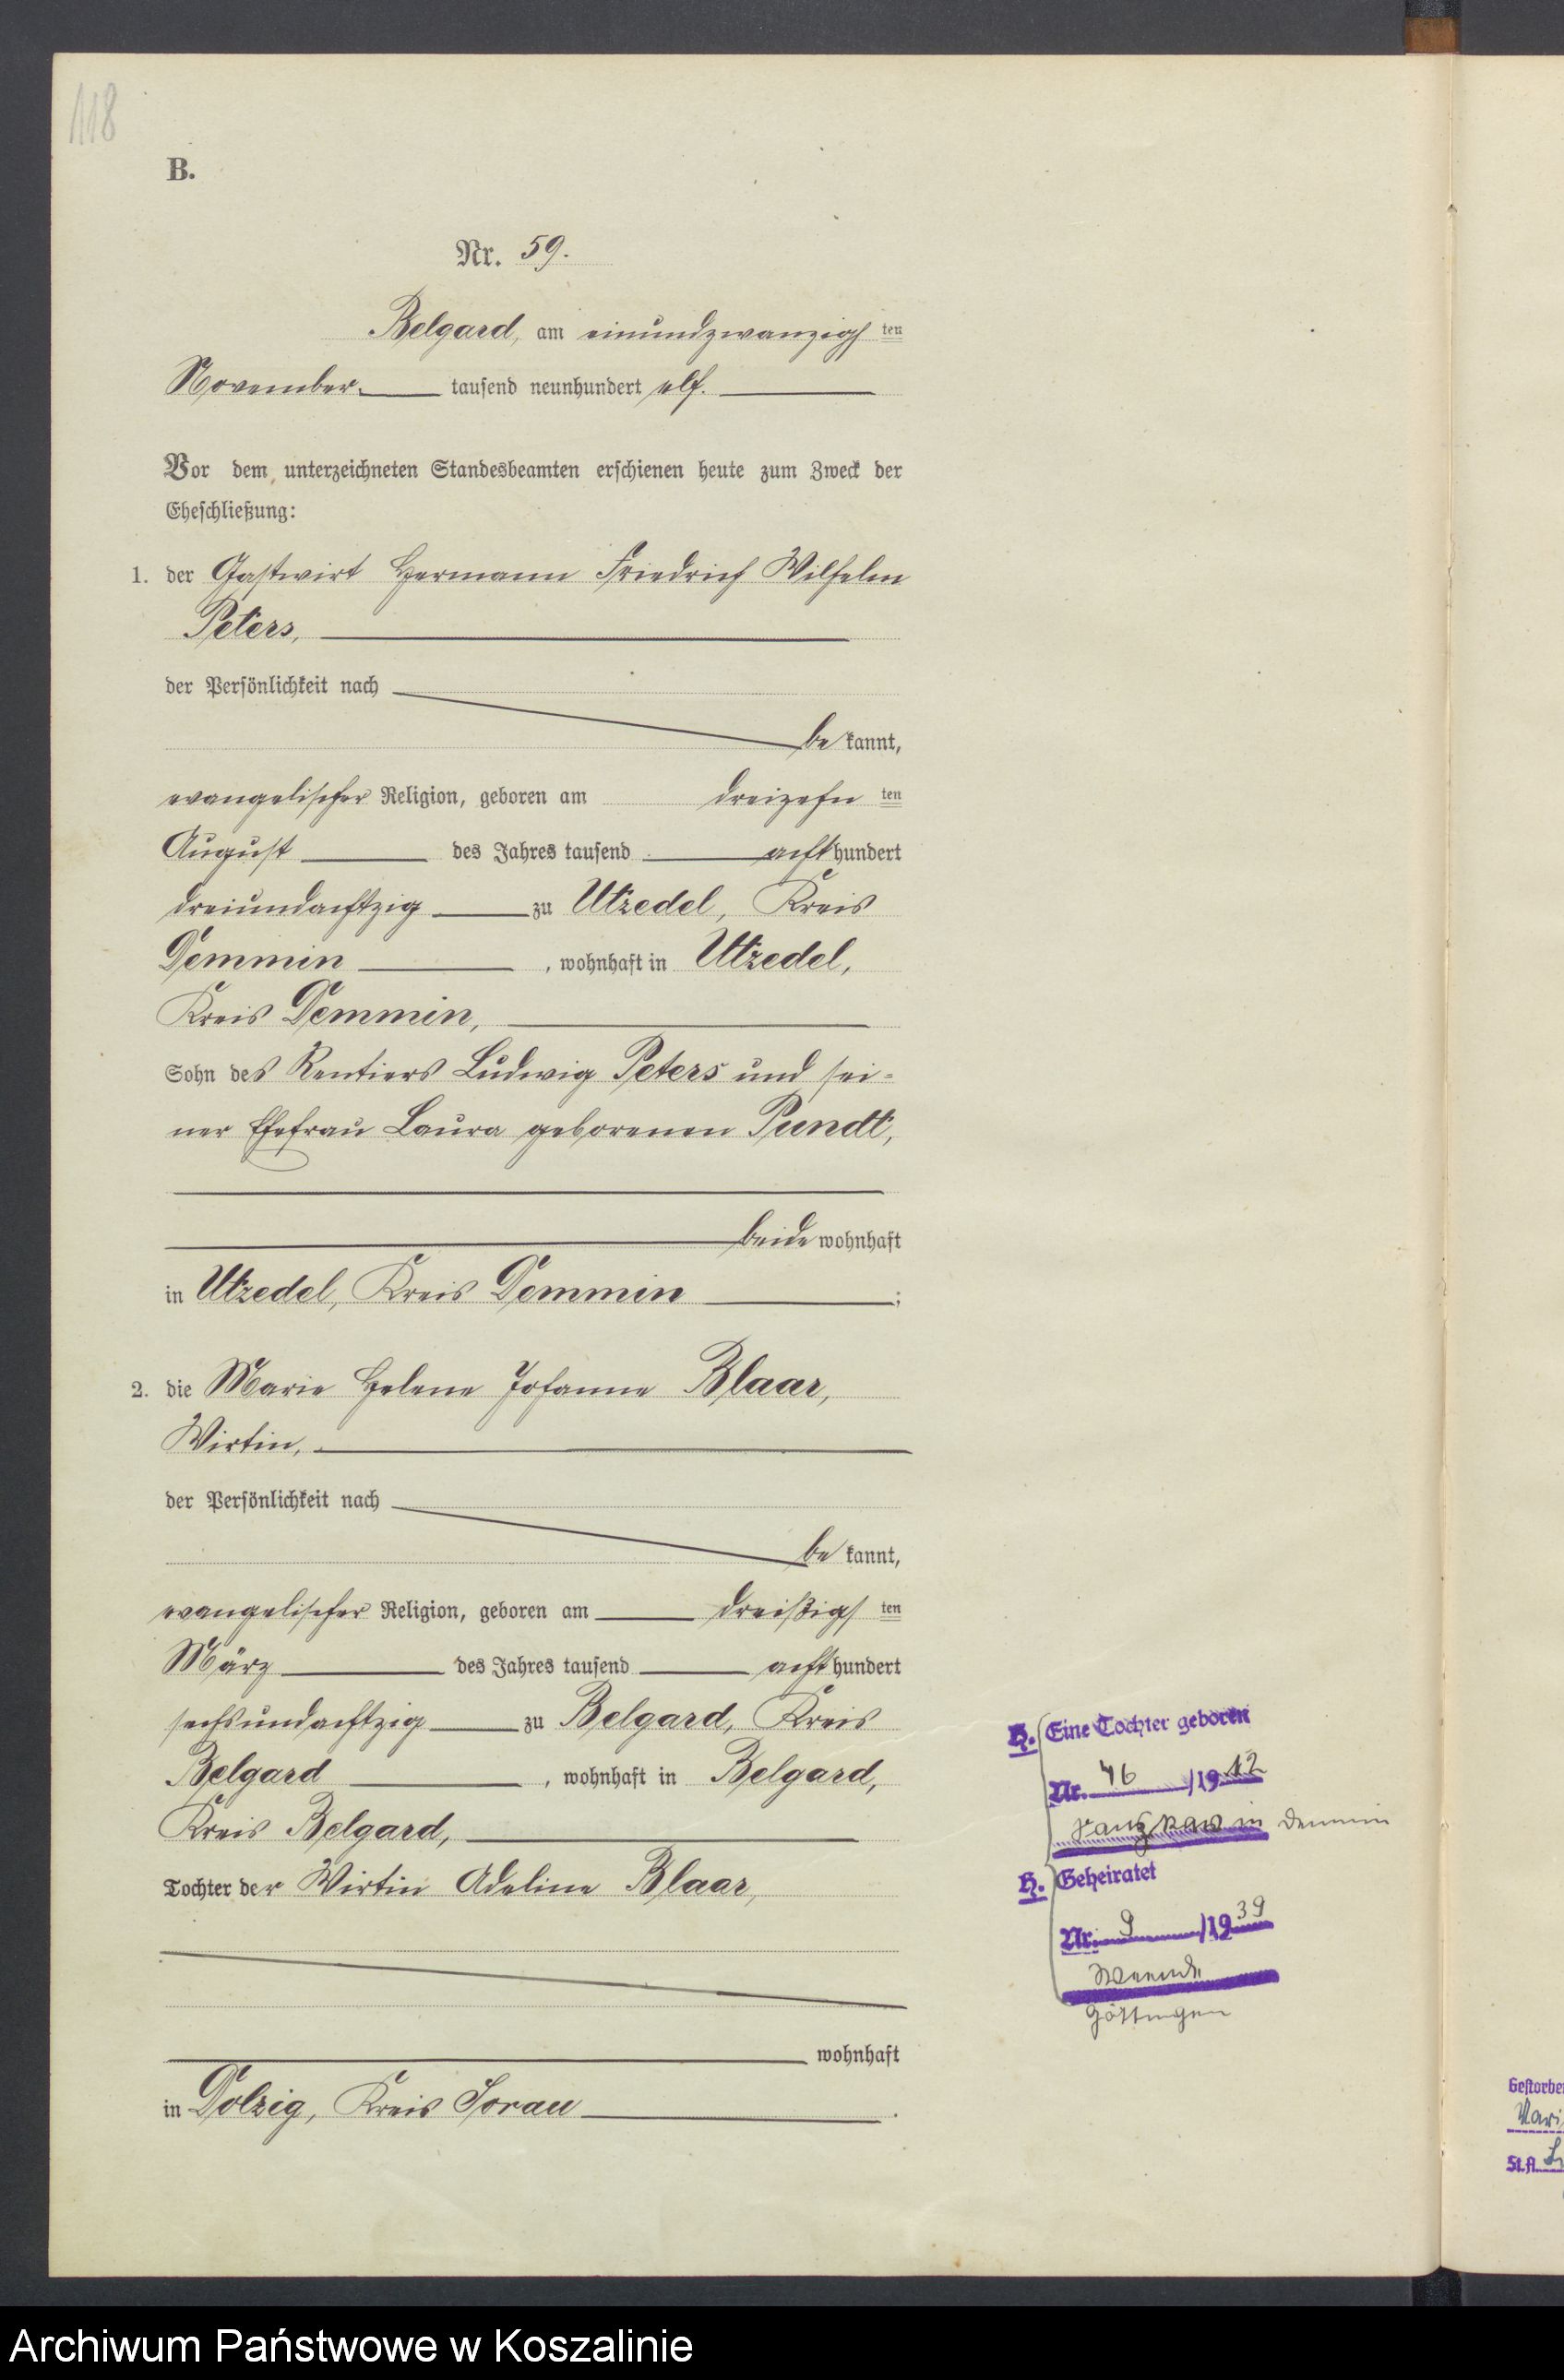 118
B.
Nr. 59.
Belgard, am einundzwanzigsten
November tausend neunhundert elf.
Vor dem unterzeichneten Standesbeamten erschienen heute zum Zweck der
Eheschließung:
1. der Gastwirt Hermann Friedrich Wilhelm
Peters,
der Persönlichkeit nach
bekannt,
evangelischer Religion, geboren am dreizehnten
August des Jahres tausend achthundert
dreiundachtzig zu Utzedel, Kreis
Demmin, wohnhaft in Utzedel,
Kreis Demmin,
Sohn des Rentiers Ludwig Peters und sei-
ner Ehefrau Laura geborenen Pundt,
beide wohnhaft
in Utzedel, Kreis Demmin;
2. die Marie Helene Johanne Blaar,
Wirtin,
der Persönlichkeit nach
bekannt,
evangelischer Religion, geboren am dreißigsten
März des Jahres tausend achthundert
sechsundachtzig zu Belgard, Kreis
Belgard, wohnhaft in Belgard,
Kreis Belgard,
Tochter der Wirtin Adeline Blaar,
wohnhaft
in Dolzig, Kreis Sorau.
H. Eine Tochter geboren
Nr. 46 /1912
in Demmin
H. Geheiratet
Nr. 9 /1939
Weende
Göttingen
Gestorbe
St.A.
Archiwum Państwowe w Koszalinie